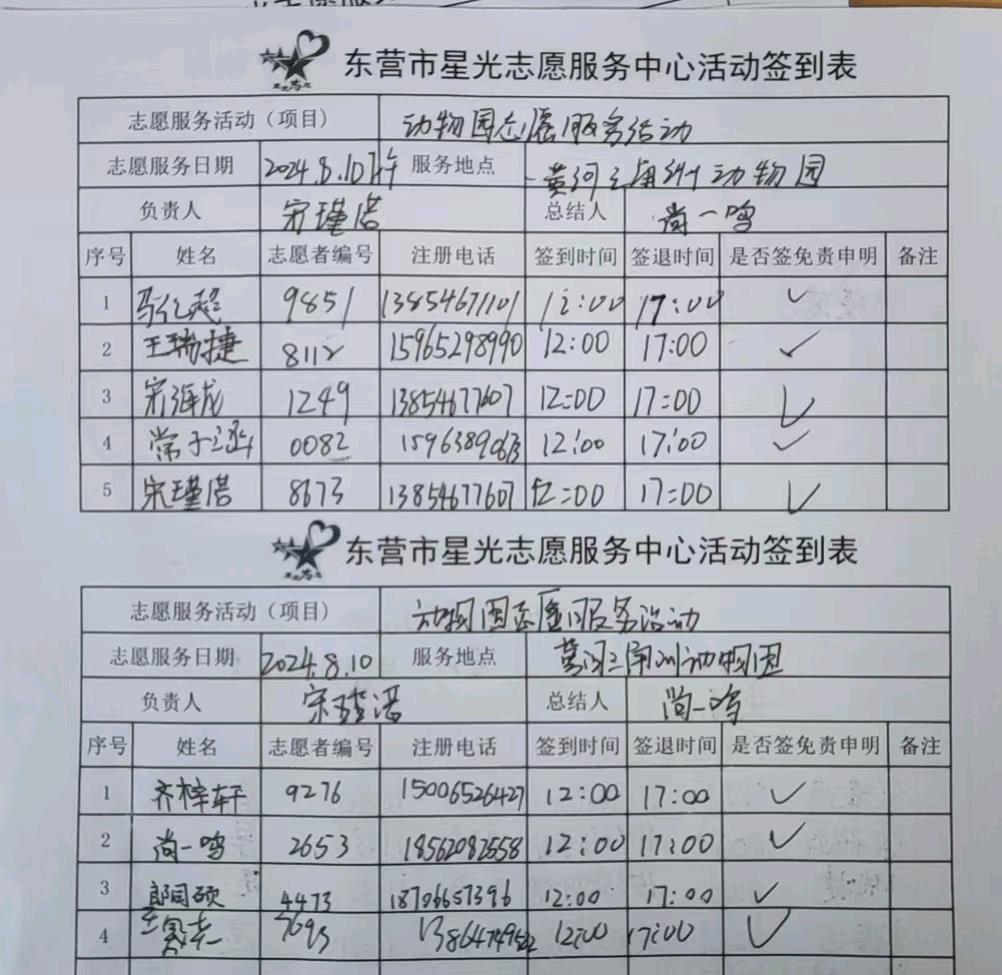 东营市星光志愿服务中心活动签到表
志愿服务活动（项目） 动物园志愿服务活动
志愿服务日期 2024.8.10下午 服务地点 黄河三角洲动物园
负责人 宋瑾浩 总结人 尚一鸣
序号 姓名 志愿者编号 注册电话 签到时间 签退时间 是否签免责申明 备注
1 马亿超 9851 13854671101 12:00 17:00 ✓
2 王瑞捷 8112 15965298990 12:00 17:00 ✓
3 宋 龙 1249 13854677607 12:00 17:00 ✓
4 常子涵 0082 1596389063 12:00 17:00 ✓
5 宋瑾浩 8673 13854677607 12:00 17:00 ✓
东营市星光志愿服务中心活动签到表
志愿服务活动（项目） 动物园志愿服务活动
志愿服务日期 2024.8.10 服务地点 黄河三角洲动物园
负责人 宋瑾浩 总结人 尚一鸣
序号 姓名 志愿者编号 注册电话 签到时间 签退时间 是否签免责申明 备注
1 齐梓轩 9276 15006526427 12:00 17:00 ✓
2 尚一鸣 2653 18562082558 12:00 17:00 ✓
3 郎同硕 4473 18706657396 12:00 17:00 ✓
4 7693 12:00 17:00 ✓